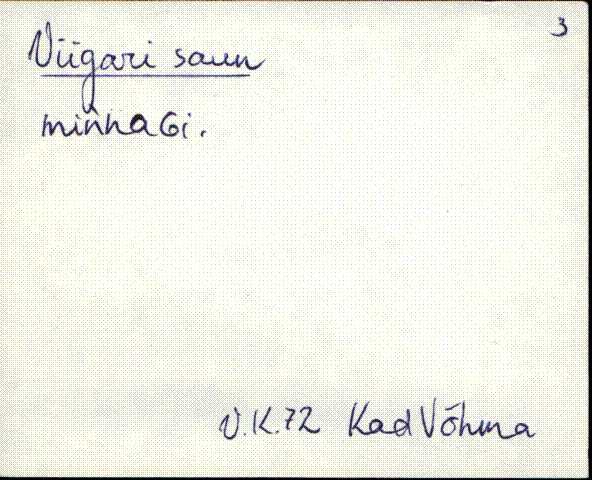 3
Viigari saun
minnaGi.
V.K.72 Kad Võhma